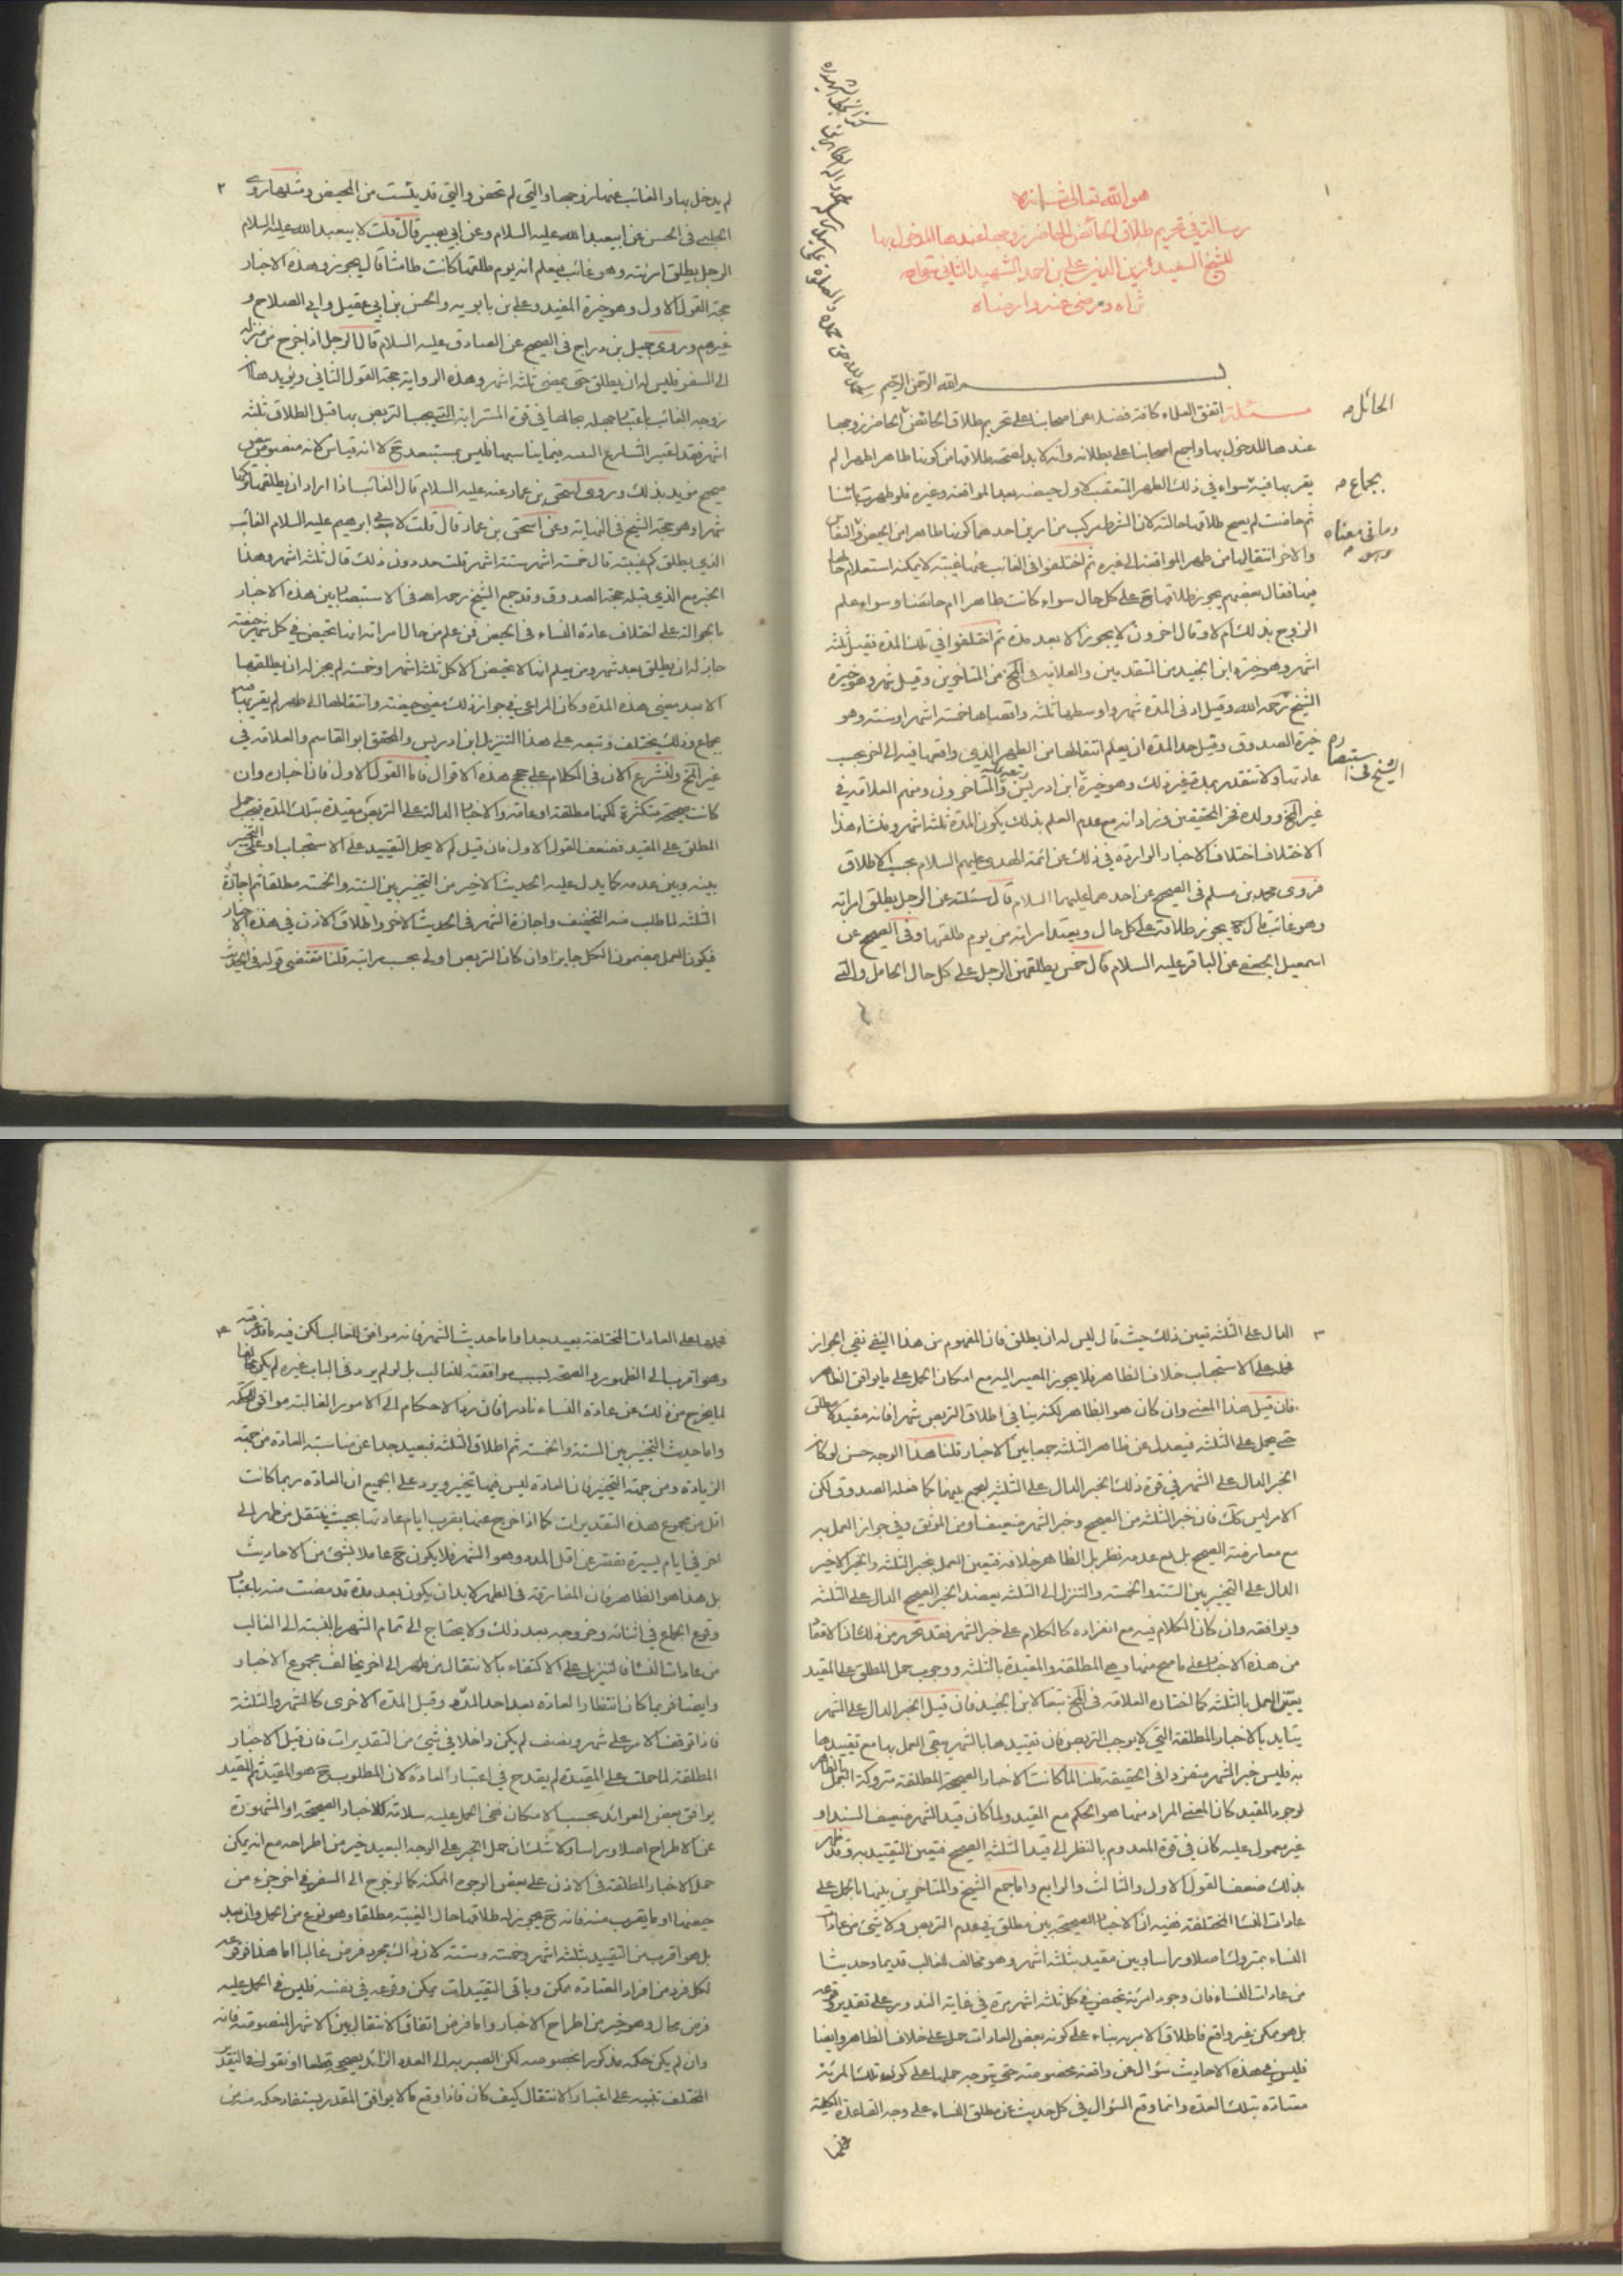 هو الله تعالى شانه
رسالة في تحريم طلاق الحائض الحاضر زوجها عندها المدخول بها
للشيخ السعيد زين الدين علي بن احمد الشهيد الثاني
ثراه ورضي عنه وارضاه
بسم الله الرحمن الرحيم
مسئلة اتفق العلماء كافة فضلا عن اصحابنا على تحريم طلاق الحائض الحاضر زوجها
عندها المدخول بها واجمع اصحابنا على بطلانه وانه لا بد لصحة طلاقها من كونها طاهرا طهرا لم
يقربها فيه سواء في ذلك الطهر المتعقب لاول حيضه بعد المواقعة وغيره فلو طهرت
ثم حاضت لم يصح طلاقها حالته لان الشرط مركب من امرين احدهما كونها طاهرا من الحيض والنفاس
والاخر انتقالها من طهر المواقعة الى غيره ثم اختلفوا في الغائب عنها غيبة لا يمكنه استعلام حالها
فيها فقال بعضهم يجوز طلاقها ح على كل حال سواء كانت طاهرا ام حائضا وسواء علم
الزوج بذلك ام لا وقال اخرون لا يجوز الا بعد مدة ثم اختلفوا في تلك المدة فقيل ثلثة
اشهر وهو خيرة ابن الجنيد من المتقدمين والعلامة في المخ من المتاخرين وقيل شهر وهو خيرة
الشيخ رحمه الله وقيل ادنى المدة شهر واوسطها ثلثة واقصاها خمسة اشهر او ستة وهو
خيرة الصدوق وقيل حد المدة ان يعلم انتقالها من الطهر الذي واقعها فيه الى اخر بحسب
عادتها ولا تتقدر بمدة غير ذلك وهو خيرة ابن ادريس والمتاخرون ومنهم العلامة في
غير المخ وولده فخر المحققين وزاد انه مع عدم العلم بذلك يكون المدة ثلثة اشهر ومنشاء هذا
الاختلاف اختلاف الاخبار الواردة في ذلك عن ائمة الهدى عليهم السلام بحسب الاطلاق
فروى محمد بن مسلم في الصحيح عن احدهما عليهما السلام قال سئلته عن الرجل يطلق امراته
وهو غائب قال يجوز طلاقه على كل حال ويعتد امراته من يوم طلقها وفي الصحيح عن
اسمعيل الجعفي عن الباقر عليه السلام قال خمس يطلقهن الرجل على كل حال الحامل والتي
الحائل
بجماع
وما في معناه
الشيخ في الاستبصار
٢
لم يدخل بها والغائب عنها زوجها والتي لم تحض والتي قد يئست من المحيض ومثلها روى
الحلبي في الحسن عن ابيعبد الله عليه السلام وعن ابي بصير قال قلت لابيعبد الله عليه السلام
الرجل يطلق امرئته وهو غائب فيعلم انه يوم طلقها كانت طامثا قال يجوز وهذه الاخبار
حجة القول الاول وهو خيرة المفيد وعلي بن بابويه والحسن بن ابي عقيل وابي الصلاح و
غيرهم وروى جميل بن دراج في الصحيح عن الصادق عليه السلام قال الرجل اذا خرج من منزله
الى السفر فليس له ان يطلق حتى يمضي ثلثة اشهر وهذه الرواية حجة القول الثاني ويؤيدها ان
زوجة الغائب باعتبار جهله بحالها في قوة المسترابة التي يجب التربص بها قبل الطلاق ثلثة
اشهر فقد اعتبر الشارع فيما يناسبها فليس بمستبعد ح لا انه قياس لانه منصوص
صحيح مؤيد بذلك وروى اسحق بن عمار عنه عليه السلام قال الغائب اذا اراد ان يطلقها تركها
شهرا وهو حجة الشيخ في النهاية وعن اسحق بن عمار قال قلت لابي ابرهيم عليه السلام الغائب
الذي يطلق كم غيبته قال خمسة اشهر ستة اشهر قلت حد دون ذلك قال ثلثة اشهر وهذا
الخبر مع الذي قبله حجة الصدوق وقد جمع الشيخ رحمه الله في الاستبصار بين هذه الاخبار
بالحوالة على اختلاف عادة النساء في الحيض فمن علم من حال امراته انها تحيض في كل شهر حيضة
جاز له ان يطلق بعد شهر ومن يعلم انها لا تحيض الا كل ثلثة اشهر او خمسة لم يجز له ان يطلقها
الا بعد مضي هذه المدة وكان المراعى في جواز ذلك مضي حيضة وانتقالها الى طهر لم يقربها فيه
بجماع وذلك يختلف وتبعه على هذا التنزيل ابن ادريس والمحقق ابو القاسم والعلامة في
غير المخ ولنشرع الان في الكلام على حجج هذه الاقوال فاما القول الاول فان اخباره وان
كانت صحيحة متكثرة لكنها مطلقة او عامة والاخبار الدالة على التربص مقيدة بتلك المدة فيجب حمل
المطلق على المقيد فضعف القول الاول فان قيل لم لا يحمل التقييد على الاستحباب او على التخيير
بينه وبين عدمه كما يدل عليه الحديث الاخير من التخيير بين الستة والخمسة مطلقا ثم اجازة
الثلثة لما طلب منه التخفيف واجازة الشهر في الحديث الاخر واطلاق الاذن في هذه الاخبار
فيكون العمل بمضمون الكل جايزا وان كان التربص اولى بحسب مراتبه قلنا مقتضى قوله في الحديث
٣
الدال على الثلثة تعين ذلك حيث قال ليس له ان يطلق فان المفهوم من هذا النفي نفي الجواز
فحمله على الاستحباب خلاف الظاهر فلا يجوز المصير اليه مع امكان الحمل على ما يوافق الظاهر
فان قيل هذا المعنى وان كان هو الظاهر لكنه ينافي اطلاق التربص شهرا فانه مقيد لا مطلق
حتى يحمل على الثلثة فيعدل عن ظاهر الثلثة جمعا بين الاخبار قلنا هذا الوجه حسن لو كان
الخبر الدال على الشهر في قوة ذلك الخبر الدال على الثلثة ليجمع بينهما كما فعله الصدوق لكن
الامر ليس كك فان خبر الثلثة من الصحيح وخبر الشهر ضعيف او من الموثق وفي جواز العمل به
مع معارضة الصحيح بل مع عدمه نظر بل الظاهر خلافه فتعين العمل بخبر الثلثة والخبر الاخير
الدال على التخيير بين الستة والخمسة والتنزل الى الثلثة يعضد الخبر الصحيح الدال على الثلثة
ويوافقه وان كان الكلام فيه مع انفراده كالكلام على خبر الشهر فقد تحرر من ذلك ان
من هذه الاخبار على ما صح منها وهي المطلقة والمقيدة بالثلثة ووجوب حمل المطلق على المقيد
يعين العمل بالثلثة كما اختاره العلامة في المخ تبعا لابن الجنيد فان قيل الخبر الدال على الشهر
يتايد بالاخبار المطلقة التي لا يوجب التربص فان تقييدها بالشهر يبقي العمل بها مع تقييدها
به فليس خبر الشهر منفردا في الحقيقة قلنا لما كانت الاخبار الصحيحة المطلقة متروكة العمل
لوجود المقيد كان المعنى المراد منها هو الحكم مع القيد ولما كان قيد الشهر ضعيف السند او
غير معمول عليه كان في قوة المعدوم بالنظر الى قيد الثلثة الصحيح فتعين التقييد به وقد ظهر
بذلك ضعف القول الاول والثالث والرابع واما جمع الشيخ والمتاخرين بينهما بالحمل على
عادات النساء المختلفة ففيه ان الاخبار الصحيحة بين مطلق في عدم التربص ولا شيء من عادات
النساء بمتروك اصلا ورأسا وبين مقيد بثلثة اشهر وهو مخالف لغالب قديما وحديثا
من عادات النساء فان وجود امرئة تحيض في كل ثلثة اشهر مرة في غاية الندور على تقدير وقوعه
بل هو ممكن غير واقع فاطلاق الامر به بناء على كونه بعض العادات حمل على خلاف الظاهر وايضا
فليس في هذه الاحاديث سؤال عن واقعة مخصوصة حتى يتوجه حملها على كون تلك المرئة
معتادة بتلك العدة وانما وقع السؤال في كل حديث عن مطلق النساء على وجه القاعدة الكلية
فحملها
٤
فحملها على العادات المختلفة بعيد جدا واما حديث الشهر فانه موافق للغالب لكن فيه ما قد عرفته
وهو اقرب الى الظهور والصحة لسبب موافقته للغالب بل لو لم يرد في الباب غيره لم يكن مخالفا
لما يخرج من ذلك عن عادة النساء نادرا فان رد الاحكام الى الامور الغالبة موافق للحكمة
واما حديث التخيير بين الستة والخمسة ثم اطلاق الثلثة فبعيد جدا عن مناسبة العادة من جهة
الزيادة ومن جهة التخيير فان العادة ليس فيها تخيير ويرد على الجميع ان العادة ربما كانت
اقل من مجموع هذه التقديرات كما اذا خرج عنها بقرب ايام عادتها بحيث ينتقل من طهر الى
اخر في ايام يسيرة تقصر عن اقل المدد وهو الشهر فلا يكون ح عاملا بشيء من الاحاديث
بل هذا هو الظاهر فان المفارقة في الطهر لا بد ان يكون بعد مدة قد مضت منه باعتبار
وقوع الجماع في اثنائه وخروجه بعد ذلك ولا يحتاج الى تمام الشهر بالنسبة الى الغالب
من عادات النساء فالتنزيل على الاكتفاء بالانتقال من طهر الى اخر يخالف مجموع الاخبار
وايضا فربما كان انتظار العادة بعد احد المدد وقبل المدة الاخرى كالشهر والثلثة
فاذا توقف الامر على شهر ونصف لم يكن داخلا في شيء من التقديرات فان قيل الاخبار
المطلقة لما حملت على المقيدة لم يقدح في اعتبار العادة لان المطلوب ح هو المقيد ثم المقيد
يوافق بعض العوائد بحسب الامكان فنحن الحمل عليه سلامة للاخبار الصحيحة او المشهورة
عن الاطراح اصلا ورأسا ولا شك ان حمل الخبر على الوجه البعيد خير من اطراحه مع انه يمكن
حمل الاخبار المطلقة في الاذن على بعض الوجوه الممكنة كما لو خرج الى السفر في اخر جزء من
حيضها او ما يقرب منه فانه ح يجوز له طلاقها حال الغيبة مطلقا وهو نوع من الحمل وان بعد
بل هو اقرب من التقييد بثلثة اشهر وخمسة وستة لان ذلك مجرد فرض غالبا اما هذا فوقوعه
لكل فرد من افراد المعتادة ممكن وباقي التقييدات يمكن وقوعه في نفسه فليس في الحمل عليه
فرض محال وهو خير من اطراح الاخبار واما فرض اتفاق الانتقال بين الاشهر المنصوصة فانه
وان لم يكن حكمه مذكورا بخصوصه لكن الصبر به الى العدد الزائد يصححه قطعا او نقول في التقدير
المختلف تنبيه على اعتبار الانتقال كيف كان فاذا وقع ما لا يوافق المقدر يستفاد حكمه من